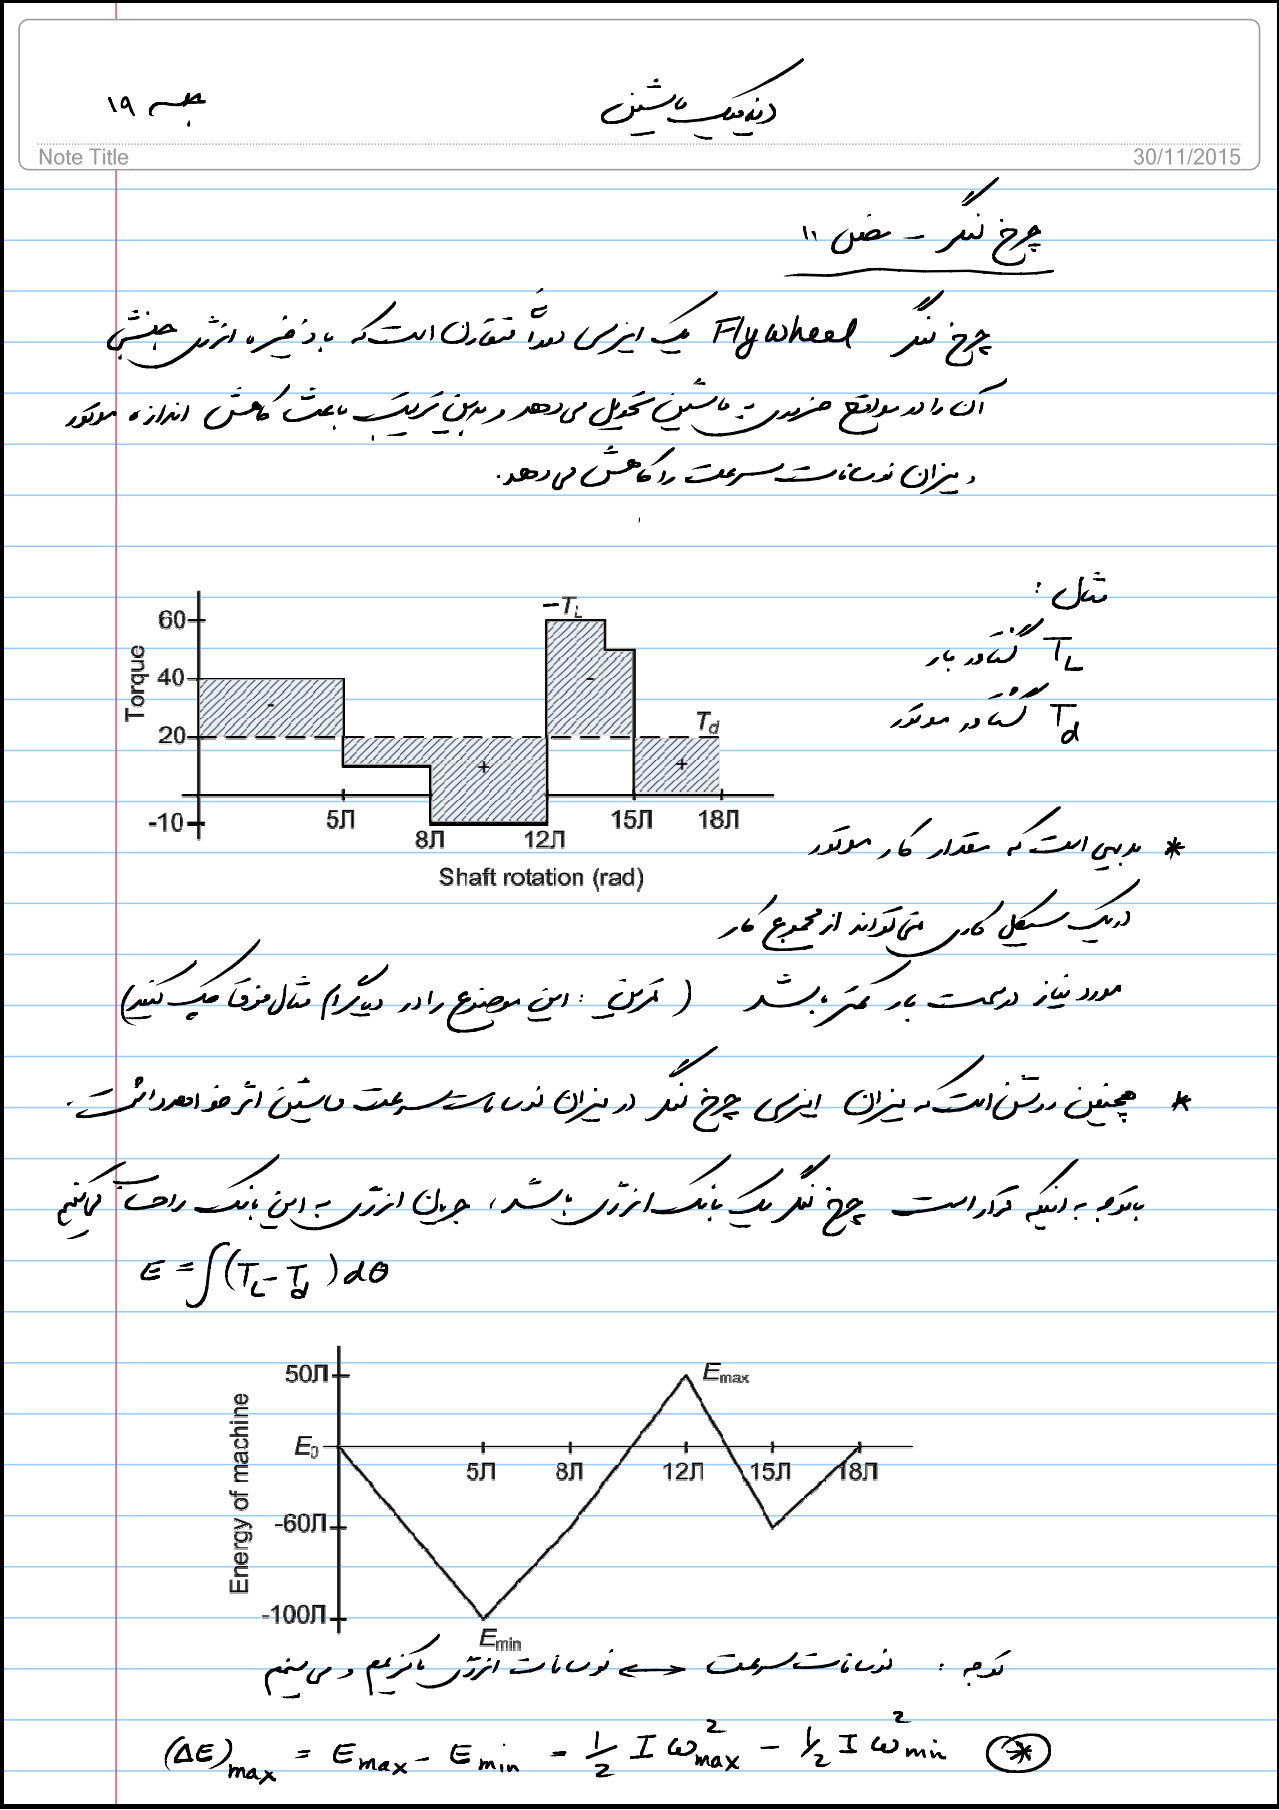 دینامیک ماشین
جلسه ۱۹
Note Title
30/11/2015
چرخ لنگر – فصل ۱۱
چرخ لنگر Flywheel یک اینرسی دوراً متقارن است که با ذخیره انرژی جنبشی
آن را در مواقع ضروری به ماشین تحویل می‌دهد و بدین ترتیب باعث کاهش اندازه موتور
و میزان نوسانات سرعت را کاهش می‌دهد.
مثال :
T_L گشتاور بار
T_d گشتاور موتور
Torque
60
40
20
-10
-T_L
T_d
-
+
-
+
5Л
8Л
12Л
15Л
18Л
Shaft rotation (rad)
* بدیهی است که مقدار کار موتور
در یک سیکل کاری نمی‌تواند از مجموع کار
مورد نیاز در سمت بار کمتر باشد (تمرین : این موضوع را در دیاگرام مثال فوق چک کنید)
* همچنین روشن است که میزان اینرسی چرخ لنگر در میزان نوسانات سرعت ماشین اثر خواهد داشت.
با توجه به اینکه قرار است چرخ لنگر یک بانک انرژی باشد، جریان انرژی به این بانک را حساب می‌کنیم
E = ∫(T_L - T_d) dθ
Energy of machine
50Л
E₀
-60Л
-100Л
E_max
5Л
8Л
12Л
15Л
18Л
E_min
توجه : نوسانات سرعت ↔ نوسانات انرژی ماکزیمم و می‌نیمم
(ΔE)_max = E_max - E_min = 1/2 I ω²_max - 1/2 I ω²_min (*)